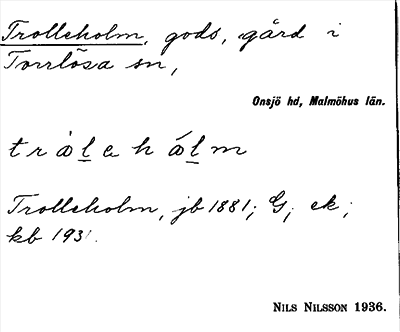 Trolleholm, gods, gård i
Torrlösa sn,
Onsjö hd, Malmöhus län.
Trolleholm, jb 1881; G; ek;
kb
NILS NILSSON 1936.